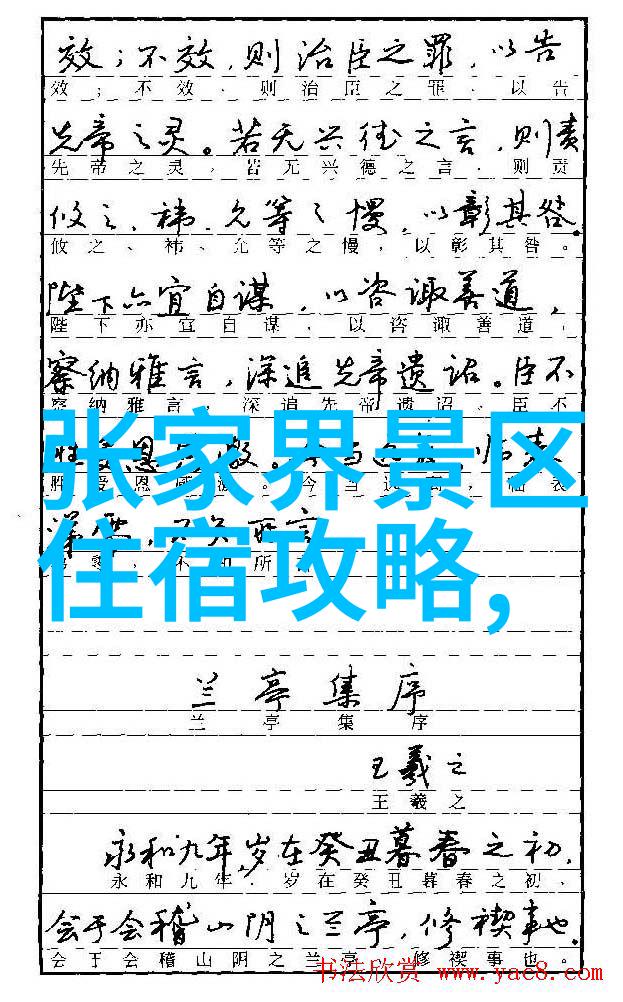 效；不效，则治臣之罪，以告
效；不效、则治臣之罪、以告
先帝之灵。若无兴德之言，则责
先帝之灵，若无兴德之言、则责
攸之、祎、允等之慢，以彰其咎。
攸之、祎、允等之慢，以彰其咎。
陛下亦宜自谋，以咨诹善道，
陛下亦宜自谋，以咨诹善道，
察纳雅言，深追先帝遗诏。臣不
察纳雅言，深追先帝遗诏。臣不
张家界景区
住宿攻略,
兰亭集序
兰亭集序
王羲之
王羲之
永和九年,岁在癸丑暮春之初,
永和九年.岁在癸丑暮春之初、
会于会稽山阴之兰亭,修禊事也.
会于会稽山阴之兰亭 修禊事也。
书法欣赏 www.yac8.com